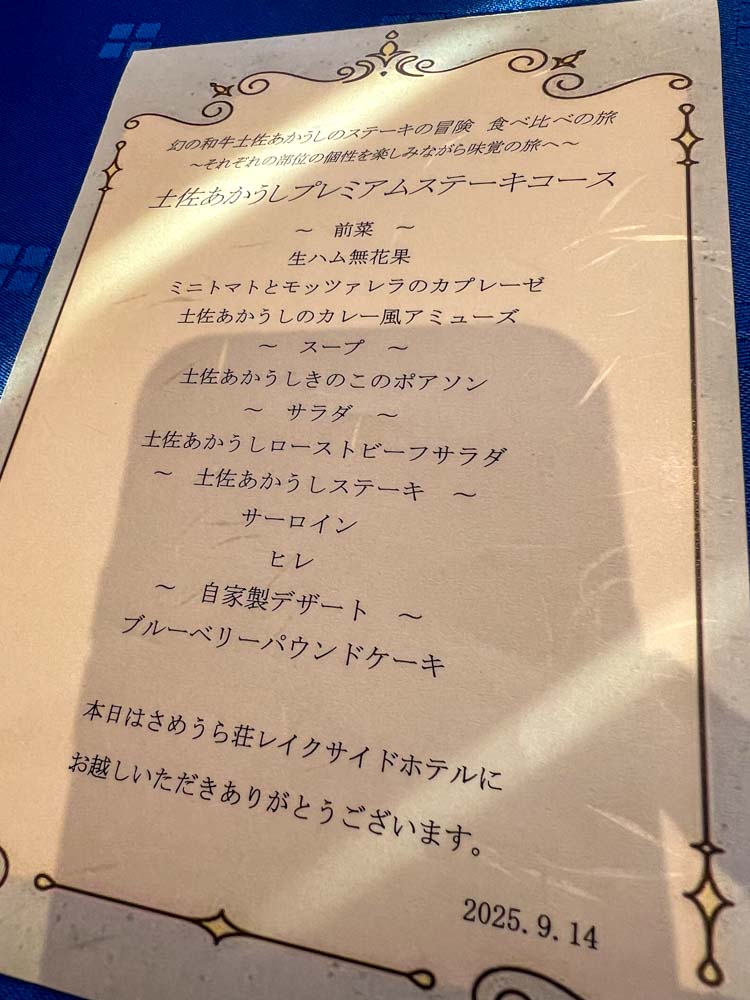 幻の和牛土佐あかうしのステーキの冒険 食べ比べの旅
～それぞれの部位の個性を楽しみながら味覚の旅へ～
土佐あかうしプレミアムステーキコース
～ 前菜 ～
生ハム無花果
ミニトマトとモッツァレラのカプレーゼ
土佐あかうしのカレー風アミューズ
～ スープ ～
土佐あかうしきのこのポアソン
～ サラダ ～
土佐あかうしローストビーフサラダ
～ 土佐あかうしステーキ ～
サーロイン
ヒレ
～ 自家製デザート ～
ブルーベリーパウンドケーキ
本日はさめうら荘レイクサイドホテルに
お越しいただきありがとうございます。
2025.9.14